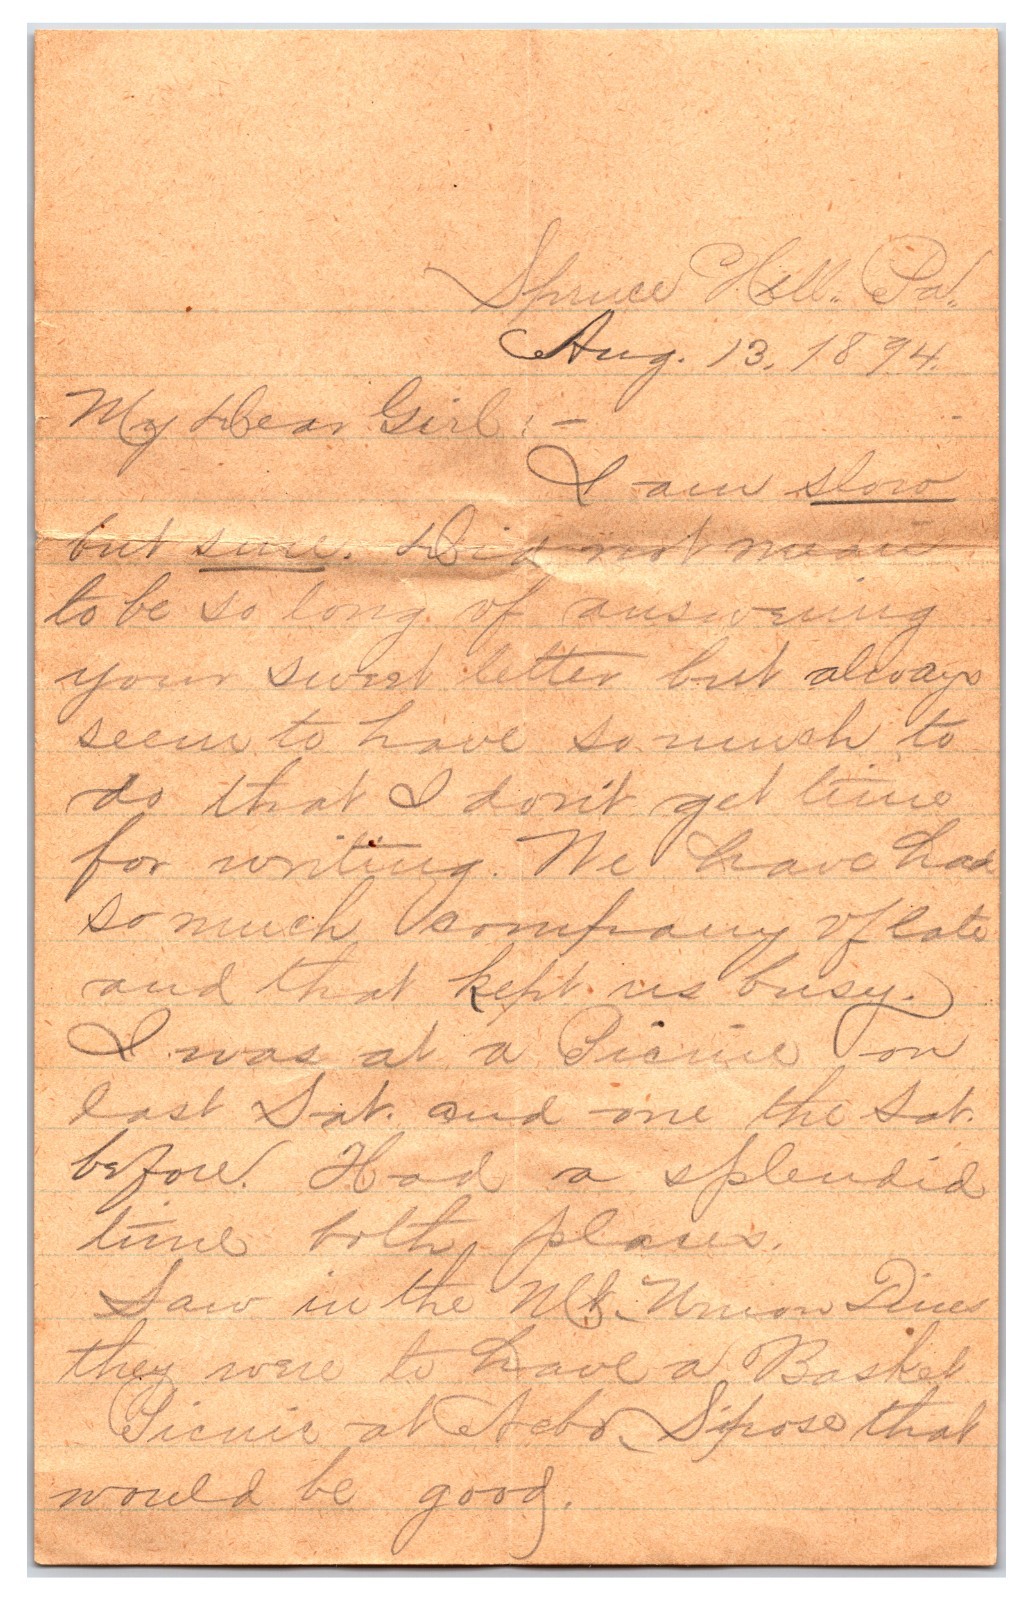 Spruce Hill.. Pa'..
Aug. 13. 1894.
My Dear Girl:-
I am slow
but sure. Did not mean
to be so long of answering
your sweet letter but always
seem to have so much to
do that I don't get time
for writing. We have had
so much company of late
and that kept us busy.
I was at a Picnic on
last Sat. and one the Sat.
before. Had a splendid
time both places.
Saw in the Mt. Union Times
they were to have a Basket
Picnic at Spose that
would be good.